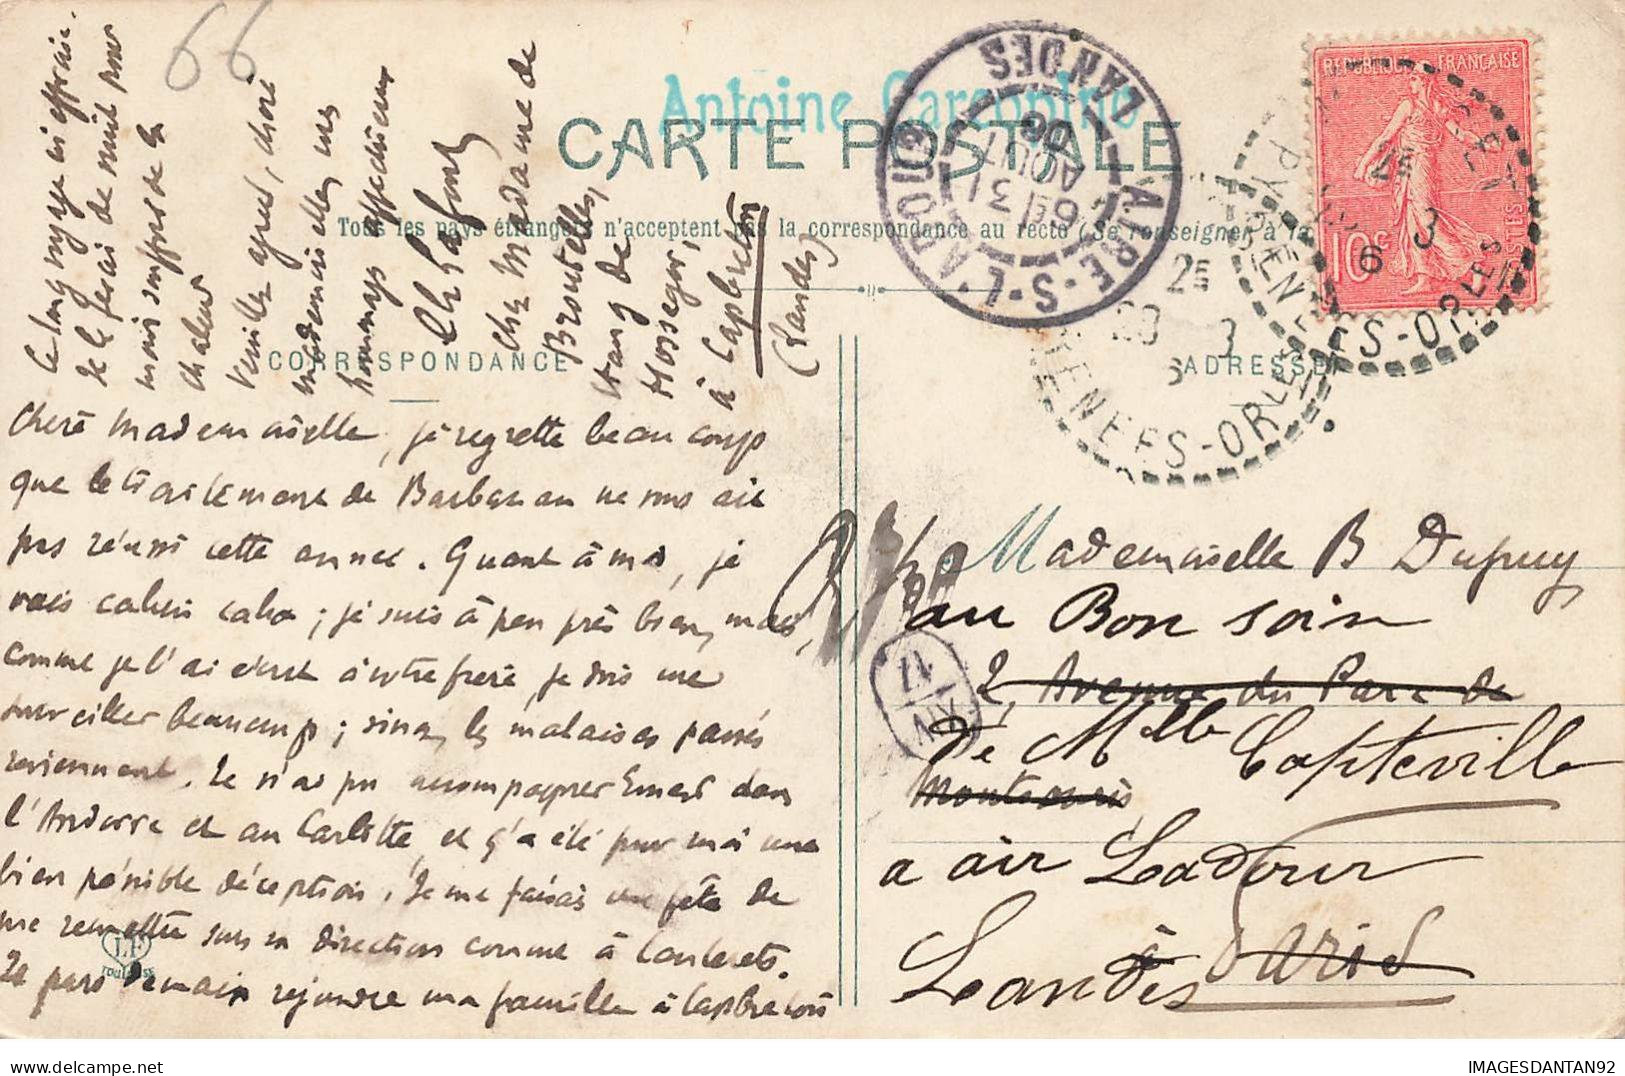 66
Antoine
CARTE POSTALE
Tous les pays étrangers n'acceptent pas la correspondance au recto (Se renseigner à la
CORRESPONDANCE
ADRESSE
REPUBLIQUE FRANÇAISE
10c
POSTES
AIRE-S-L'ADOUR
LANDES
31
AOUT
06
PYRENEES-ORLES
PYRENEES-ORLES
Chère mademoiselle, je regrette beaucoup
que le traitement de Barbazan ne vous ait
pas réussi cette année. Quant à moi, je
vais cahin caha ; je suis à peu près bien, mais,
comme je l'ai écrit à votre frère, je dois me
surveiller beaucoup ; sinon, les malaises passés
reviennent. Je n'ai pu accompagner Ernest dans
l'Andorre et au Carlitte, et ç'a été pour moi une
bien pénible déception. Je me faisais une fête de
me remettre sous sa direction comme à Cauterets.
Je pars demain rejoindre ma famille à Capbreton
LF
TOULOUSE
Ce long voyage m'effraie.
Je le ferai de nuit pour
moins souffrir de la
chaleur
Veuillez agréer, chère
mademoiselle, mes
hommages affectueux
Ch Lafont
Chez Madame de
Broutelles,
étang de
Hossegor,
à Capbreton
(Landes)
Mademoiselle B Dupuy
au Bon soin
2, Avenue du Parc de
de Mlle Capteville
Montsouris,
a air Ladour
à Paris
Landes
IMAGESDANTAN92